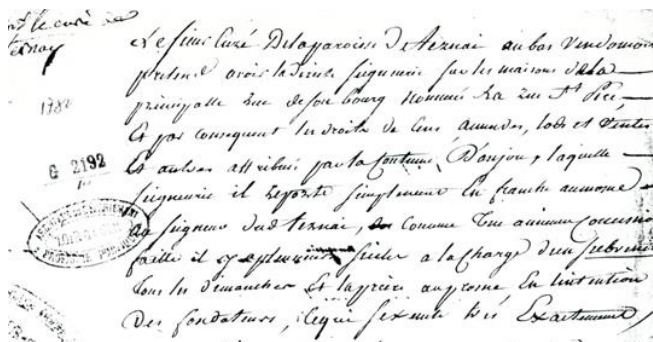 le curé de
ternay
1782
G 2192
Le sieur Curé Delaparoisse De ternai au bas Vendomois
pretend avoir la directe seigneurie sur les maisons de la
principalle rue de son bourg nommée La rue St Père,
Et par consequent les droits de Cens, amendes, lods et Ventes
Et autres attribués par la Coutume D'anjou, laquelle
seigneurie il reporte simplement En franche aumosne
au seigneur dud ternai, Comme une ancienne Concession
faitte il y a plusieurs siecles a la Charge d'un subvenite
Tous les dimanches Et la priere au prosne En l'intention
Des fondateurs, Ce qui s'execute très Exactement,